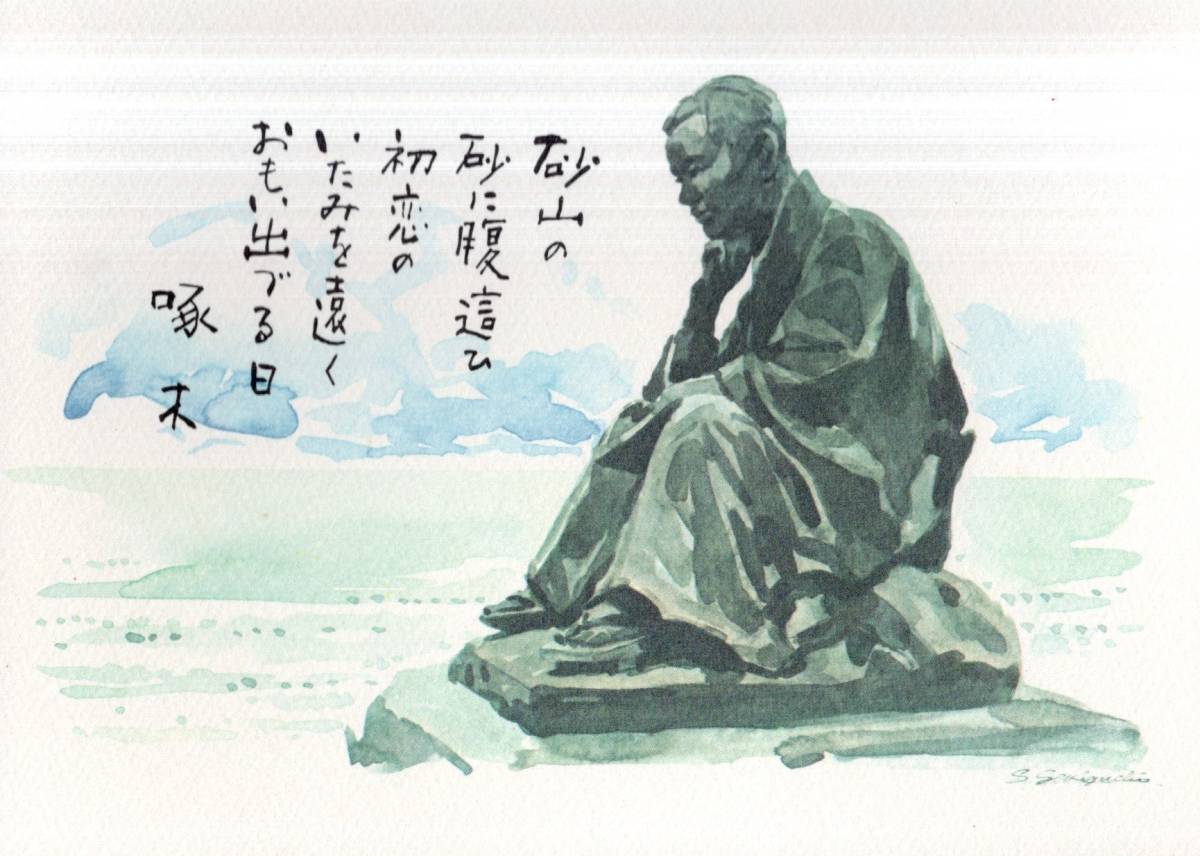 砂山の
砂に腹這ひ
初恋の
いたみを遠く
おもい出づる日
啄木
S. Sekiguchi